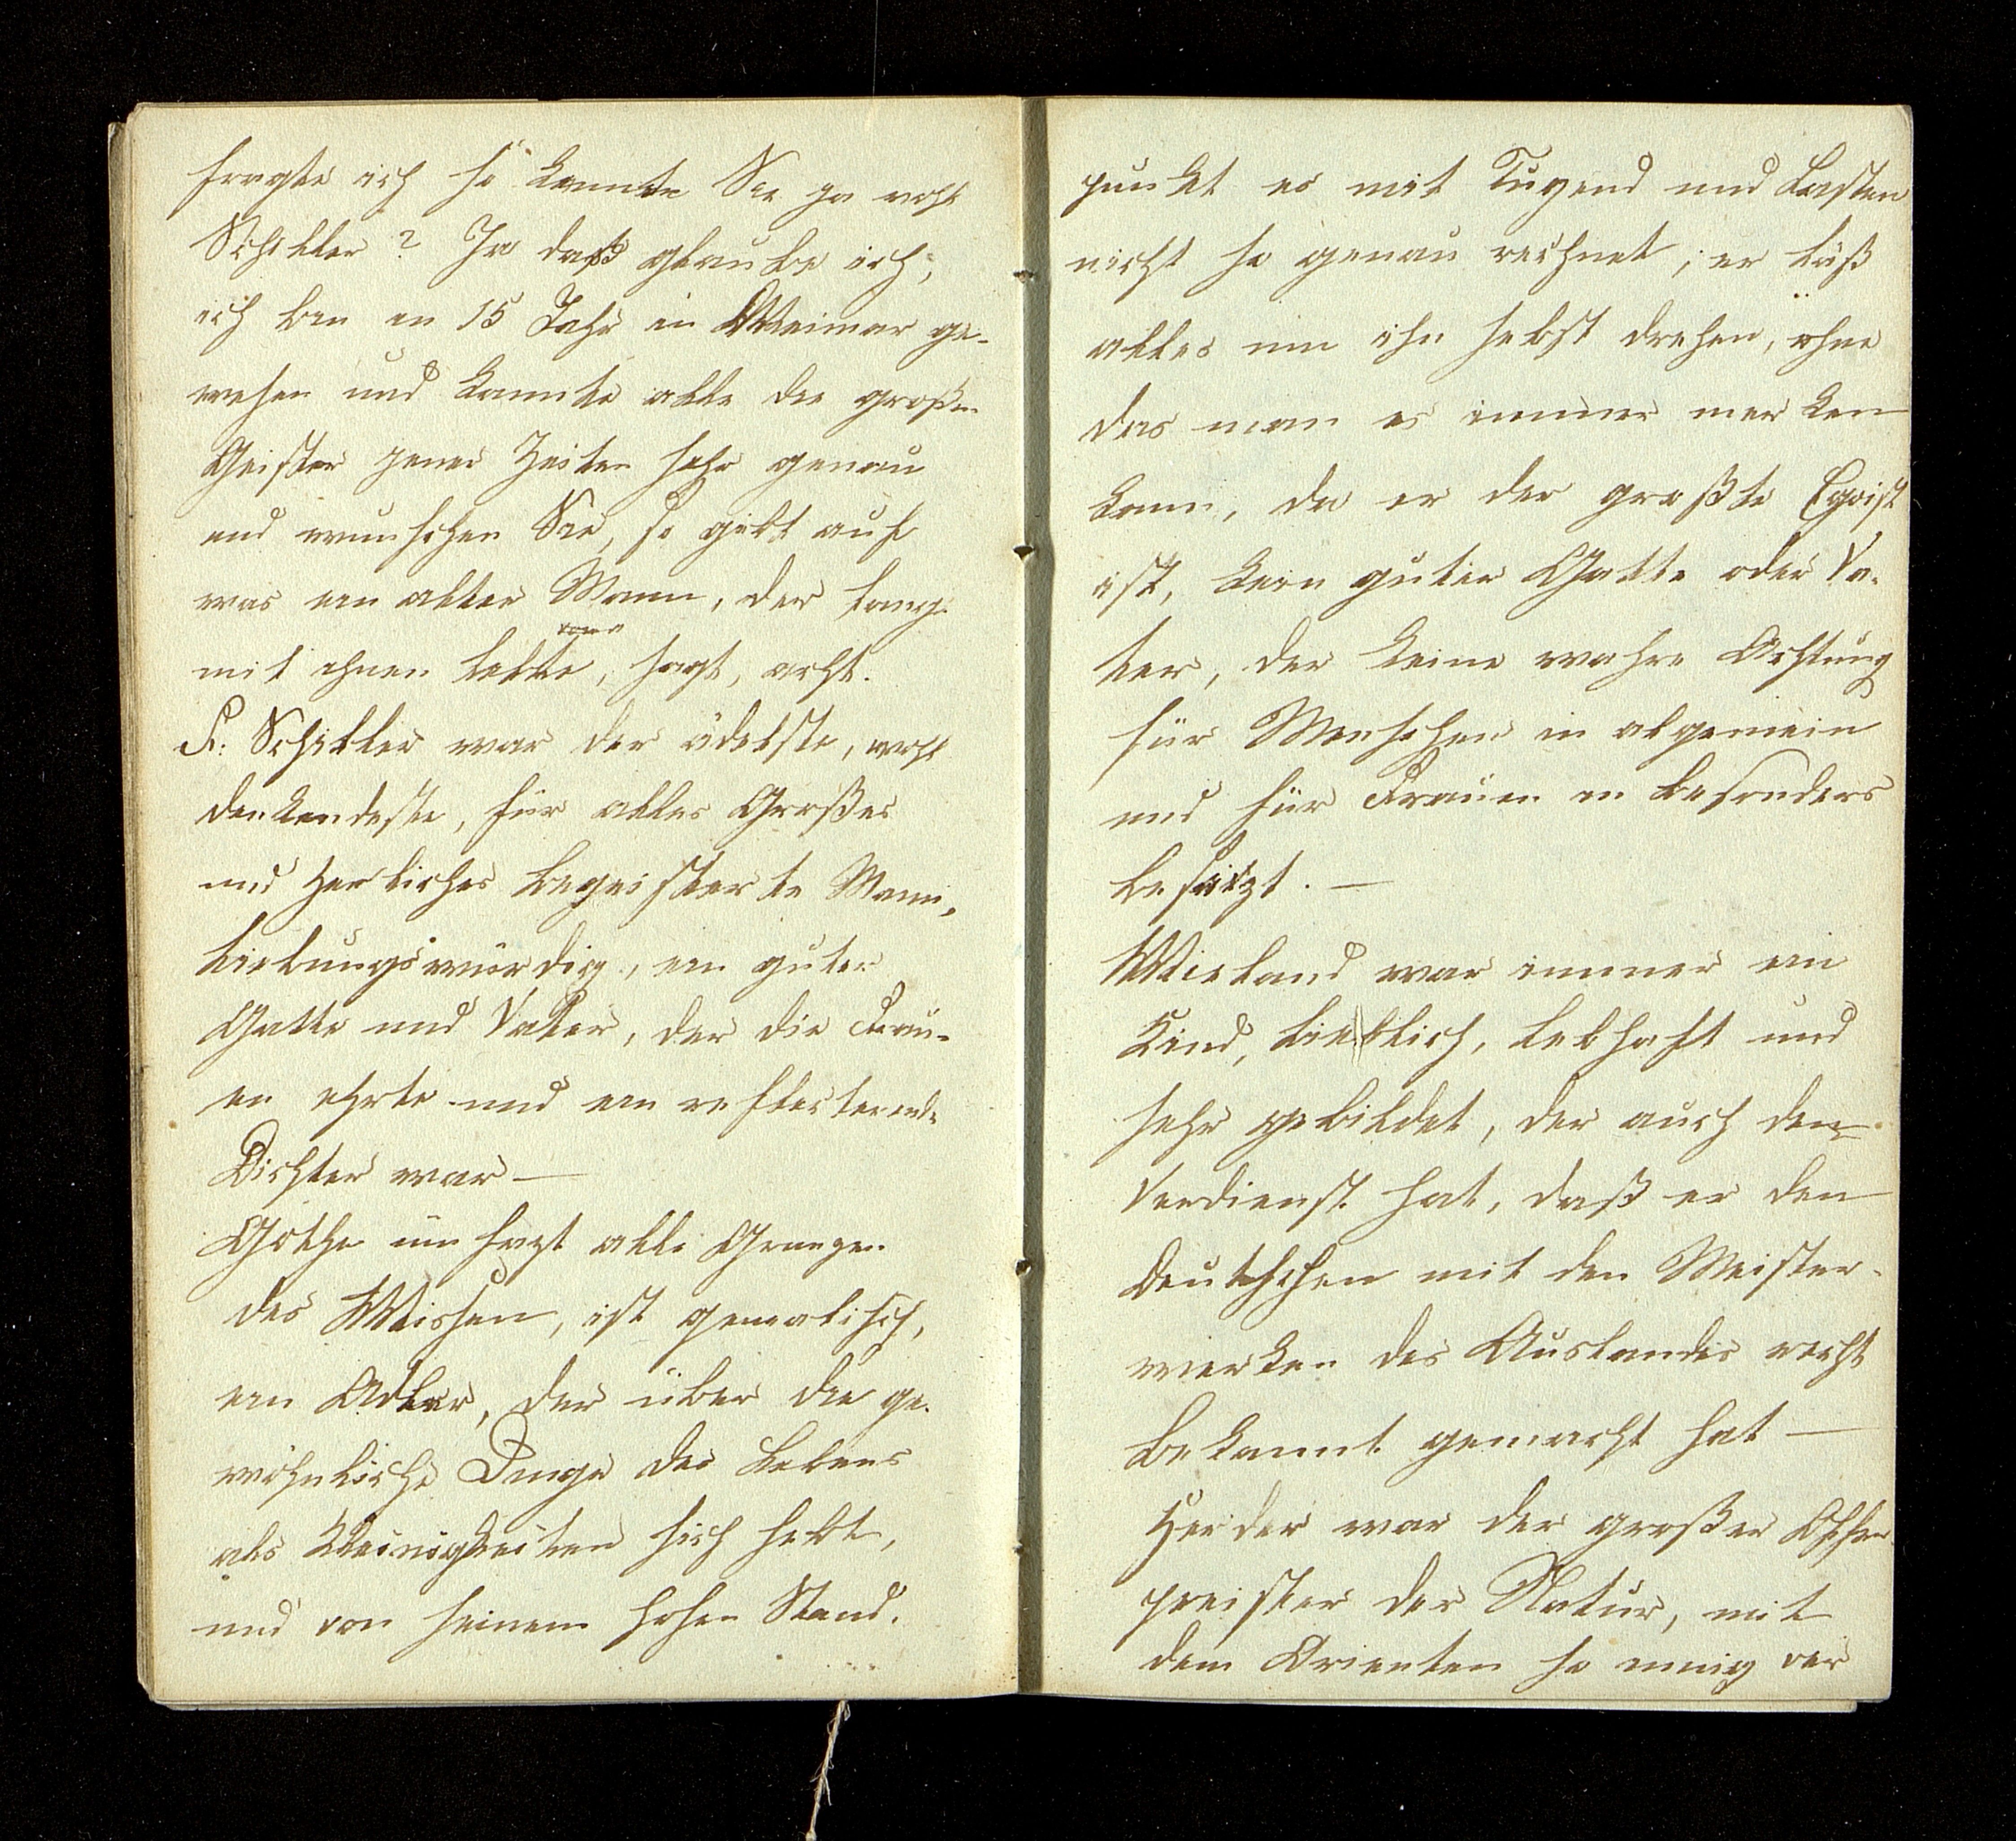 fragte ich so kannte Sie ja wohl
Schiller? Ja daß glaube ich,
ich bin in 15 Jahr in Weimar ge-
wesen und kannte alle die großen
Geister jener Zeiten sehr genau
und wunschen Sie, so gebt auf
was ein alter Mann, der lang
mit ihnen lebte, sagt, acht.
F: Schiller war der ädelste, wohl
denkendeste, für alles Großes
und Herliches begeisterte Mann,
liebungswürdig, ein guter
Gatte und Vater, der die Frau-
en ehrte und ein reflecterende
Dichter war —
Göthe umfazt alle Granzen
des Wissen, ist genealisch,
ein Adler, der über die ge-
wöhnliche Dinge des Lebens
als Kleinigkeiten sich hebt,
und von seinem hohen Stand-
punkt es mit Tugend und Lasten
nicht so genau rechnet, er läß
alles um ihn selbst drehen, ohne
das man es immer merken
kann, da er der großte Egoist
ist, kein guter Gatte oder Va-
ter, der keine wahre Achtung
für Menschen in algemein
und für Frauen in besonders
besitzt. —
Wieland war immer ein
Kind, lieblich, lebhaft und
sehr gebildet, der auch den
Verdienst hat, daß er den
Deutschen mit den Meister-
werken des Auslandes recht
bekannt gemacht hat —
Herder war der großer
preister der Natur, mit
dem Orienten so innig ver